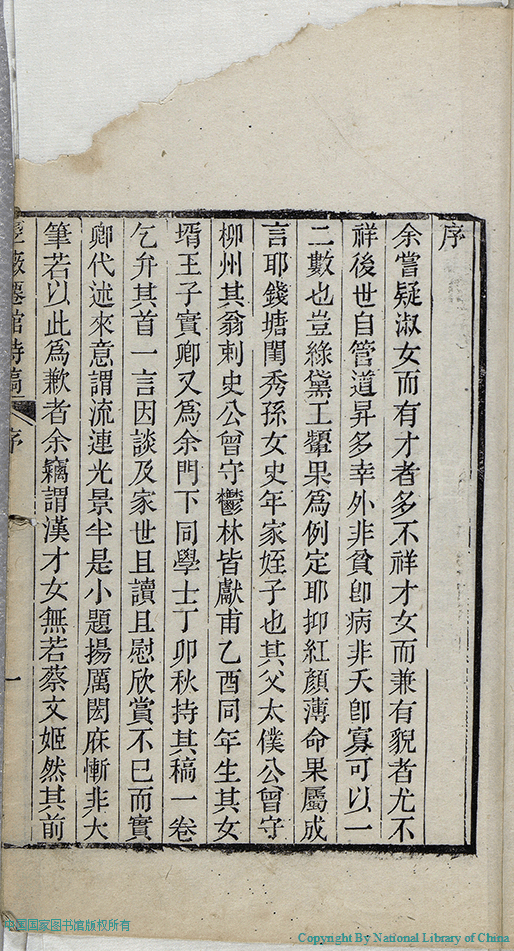 序
余嘗疑淑女而有才者多不祥才女而兼有貌者尤不
祥後世自管道昇多幸外非貧卽病非夭卽寡可以一
二數也豈綠黛工顰果爲例定耶抑紅顏薄命果屬成
言耶錢塘閨秀孫女史年家姪子也其父太僕公曾守
柳州其翁刺史公曾守鬱林皆獻甫乙酉同年生其女
壻王子實卿又爲余門下同學士丁卯秋持其稿一卷
乞弁其首一言因談及家世且讀且慰欣賞不已而實
卿代述來意謂流連光景半是小題揚厲閎庥慚非大
筆若以此爲歉者余竊謂漢才女無若蔡文姬然其前
館詩稿 序 一
中国国家图书馆版权所有
Copyright By National Library of China